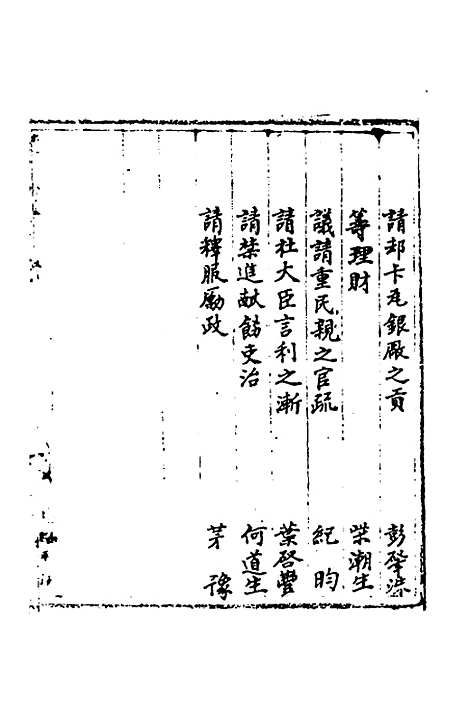 請却卡瓦銀厰之貢 彭肇洙
籌理財 柴潮生
議請重民親之官疏 紀昀
請杜大臣言利之漸 葉啓豐
請禁進献飭吏治 何道生
請釋服勵政 茅豫